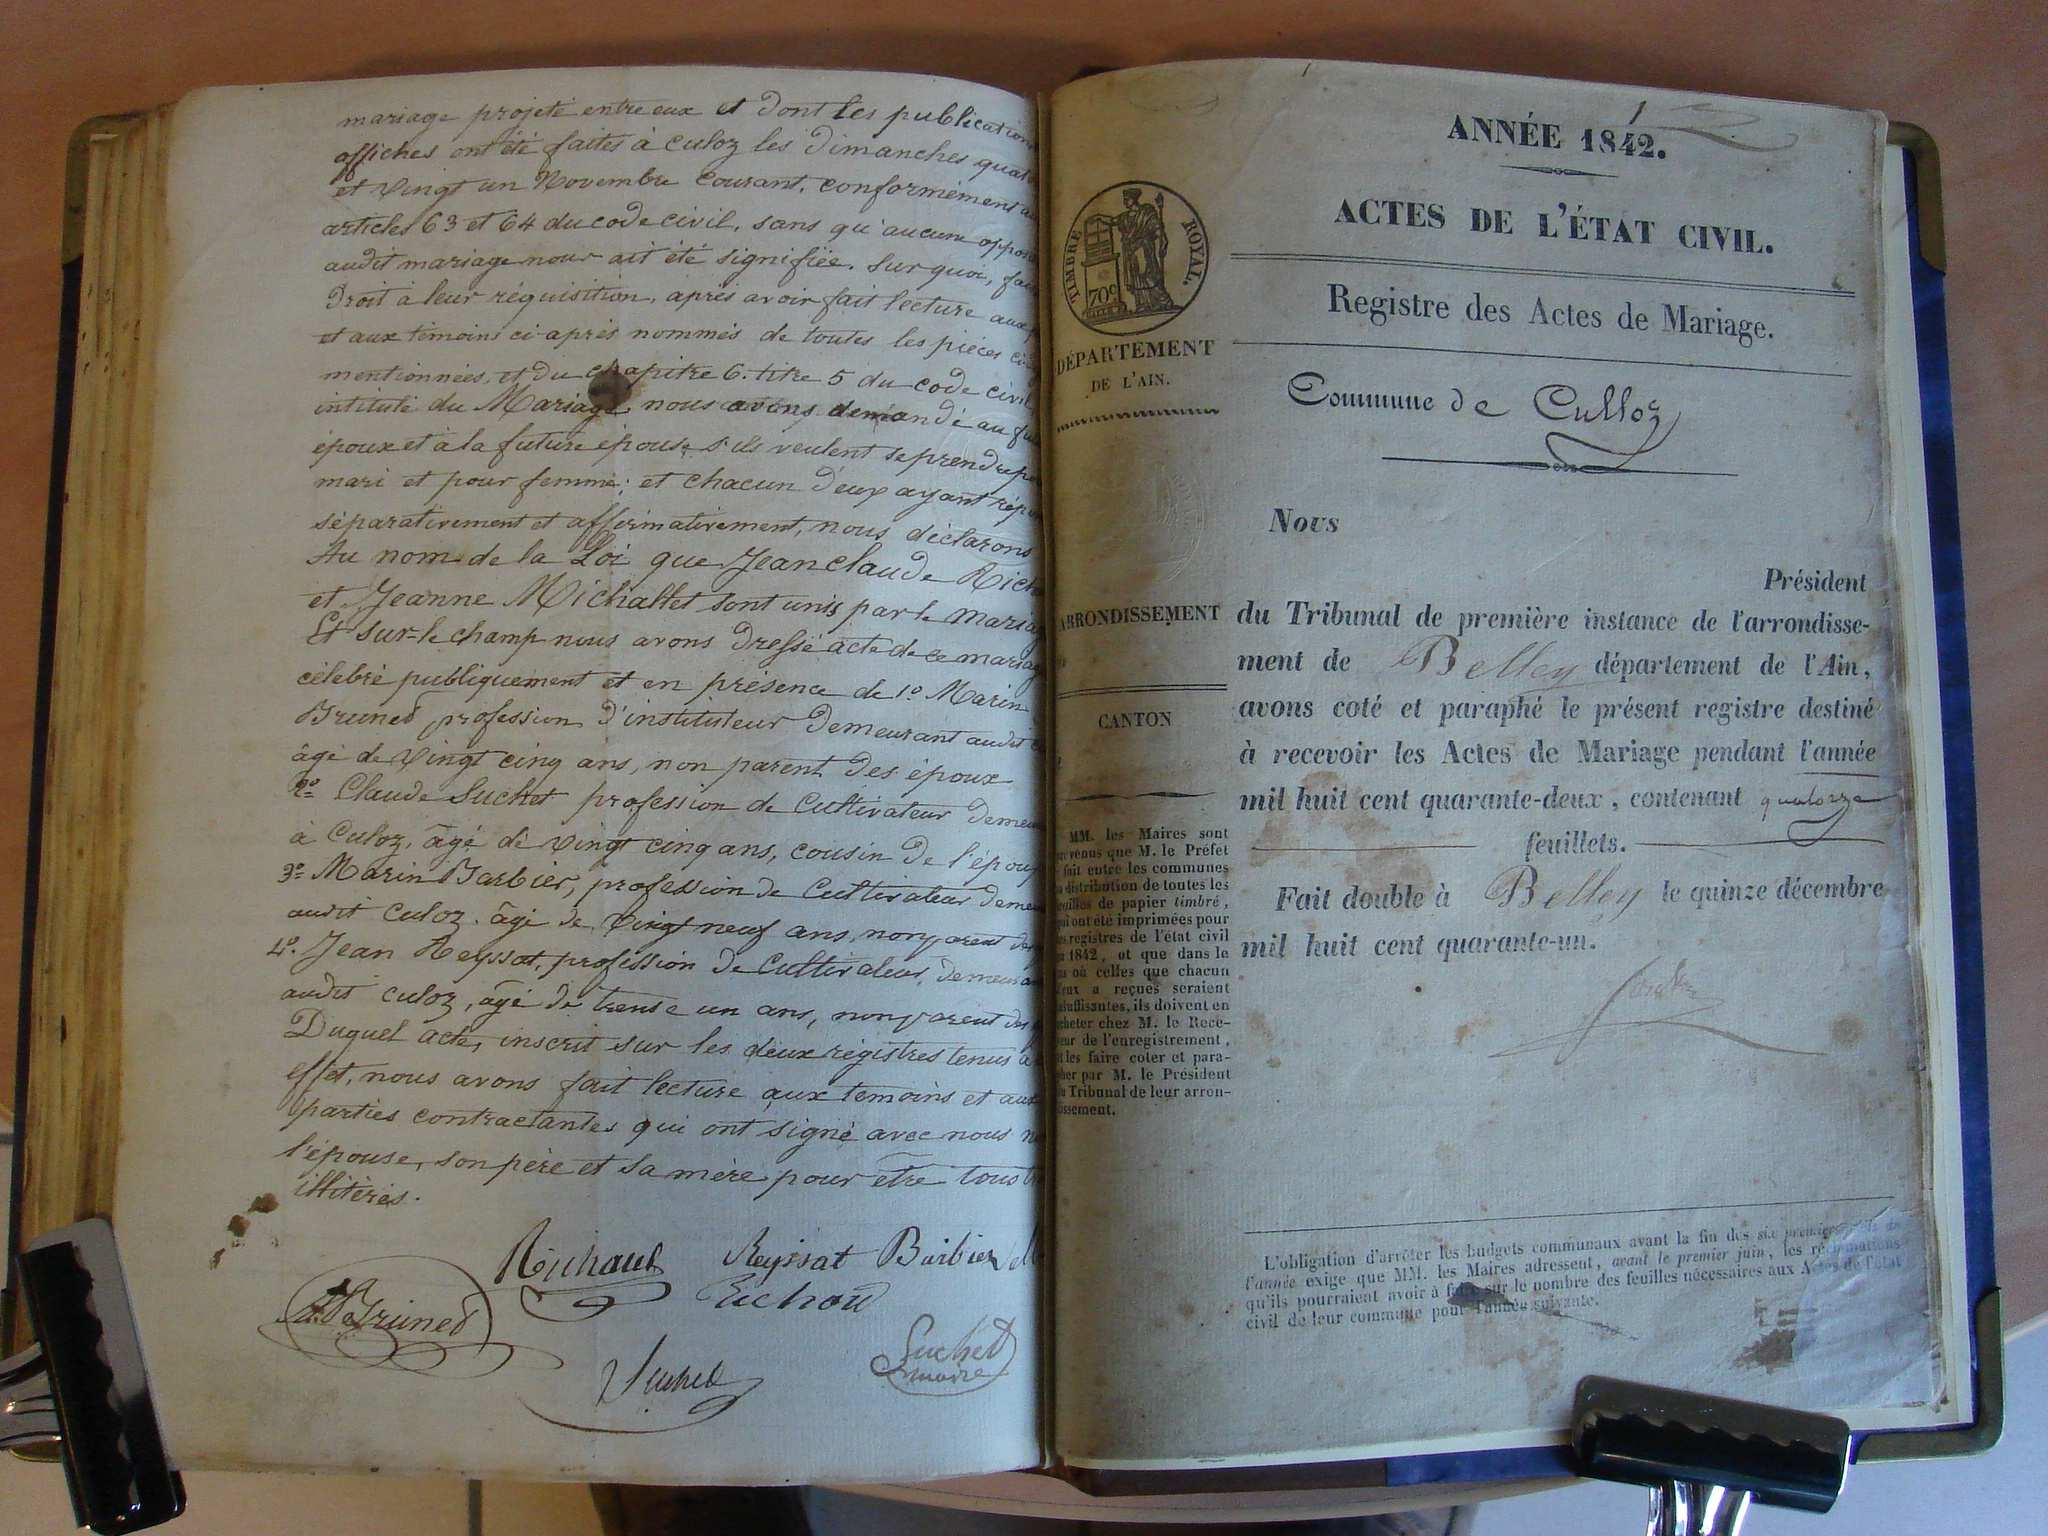 mariage projeté entre eux et dont les publications
affiches ont été faites à Culoz les Dimanches
et vingt un Novembre courant, conformément
articles 63 et 64 du code civil, sans qu'aucune
audit mariage nour ait été signifiée. Sur quoi,
Droit à leur réquisition, après avoir fait lecture aux
et aux témoins ci-après nommés de toutes les pièces
mentionnées, et du chapitre 6. titre 5 du code civil
intitulé du Mariage, nous avons demandé au
époux et à la future épouse, s'ils veulent se prendre
mari et pour femme; et chacun d'eux ayant
séparativement et affirmativement, nous déclarons
Au nom de la Loi que Jean Claude
et Jeanne Michallet sont unis par le
Et sur-le champ nous avons dressé acte de ce
célébré publiquement et en présence de 1º Marin
Bruned profession d'instituteur demeurant audit
âgé de vingt cinq ans, non parent des époux
2º Claude Suchet profession de Cultivateur
à Culoz, âgé de vingt cinq ans, cousin de
3º Marin Barbier, profession de Cultivateur
audit Culoz. âgé de vingt neuf ans, non parent
4º. Jean Reyssat, profession de Cultivateur,
audit Culoz, âgé de trente un ans, non parent
Duquel acte, inscrit sur les deux régistres tenus
effet, nous avons fait lecture aux temoins et aux
parties contractantes qui ont signé avec nous
l'épouse, son père et sa mère pour être tous
illitérés.
Richaud Reyssat Barbier
Bruned
Suchet
Suchet
maire
1
ANNÉE 1842.
ACTES DE L'ÉTAT CIVIL.
Registre des Actes de Mariage.
Commune de Culloz
TIMBRE ROYAL.
70c
DÉPARTEMENT
DE L'AIN.
ARRONDISSEMENT
CANTON
MM. les Maires sont
que M. le Préfet
fait entre les communes
distribution de toutes les
de papier timbré,
ont été imprimées pour
registres de l'état civil
1842, et que dans le
où celles que chacun
a reçues seraient
ils doivent en
chez M. le Rece-
de l'enregistrement,
les faire coter et para-
par M. le Président
Tribunal de leur arron-
Nous
Président
du Tribunal de première instance de l'arrondisse-
ment de Belley département de l'Ain,
avons coté et paraphé le présent registre destiné
à recevoir les Actes de Mariage pendant l'année
mil huit cent quarante-deux, contenant quatorze
feuillets.
Fait double à Belley le quinze décembre
mil huit cent quarante-un.
L'obligation d'arrêter les budgets communaux avant la fin des six premiers mois de
l'année exige que MM. les Maires adressent, avant le premier juin, les réclamations
qu'ils pourraient avoir à faire sur le nombre des feuilles nécessaires aux Actes de l'état
civil de leur commune pour l'année suivante.